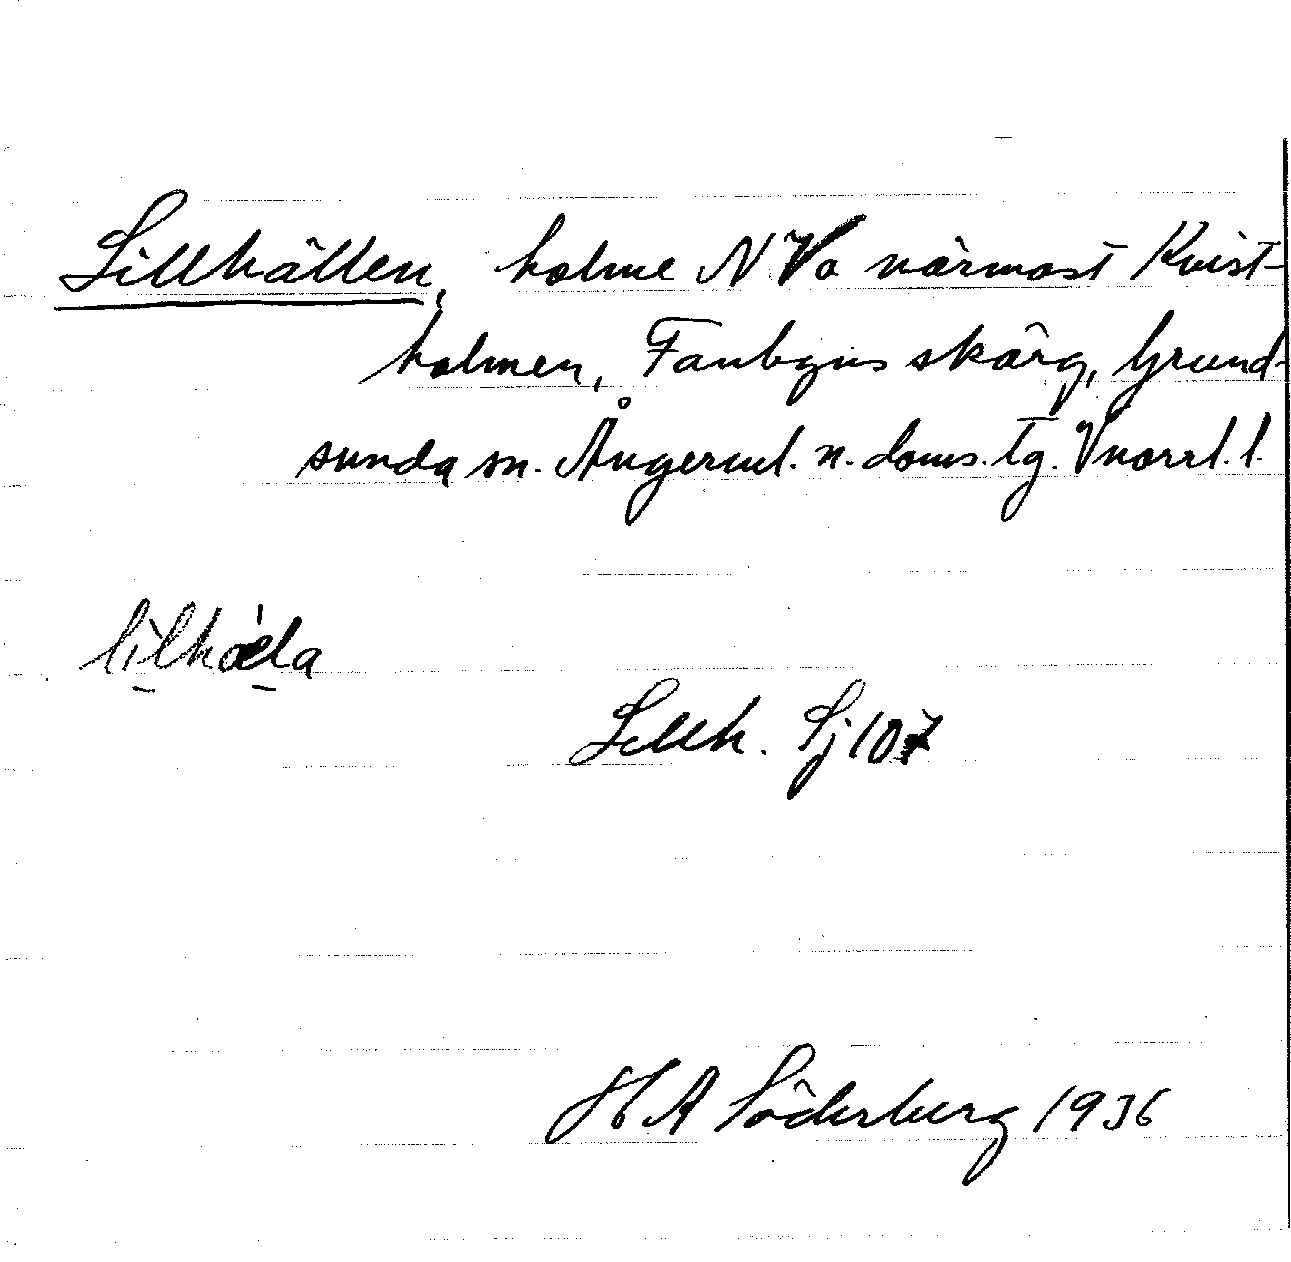 Lillhällen, holme N Vo närmast Kvist-
holmen, Fanbyns skärg, Grund-
sunda sn. Ångerml. n. doms. tg. Vnorrl. l.
lilhæla
Lillh. Sj 107
H A Söderberg 1936